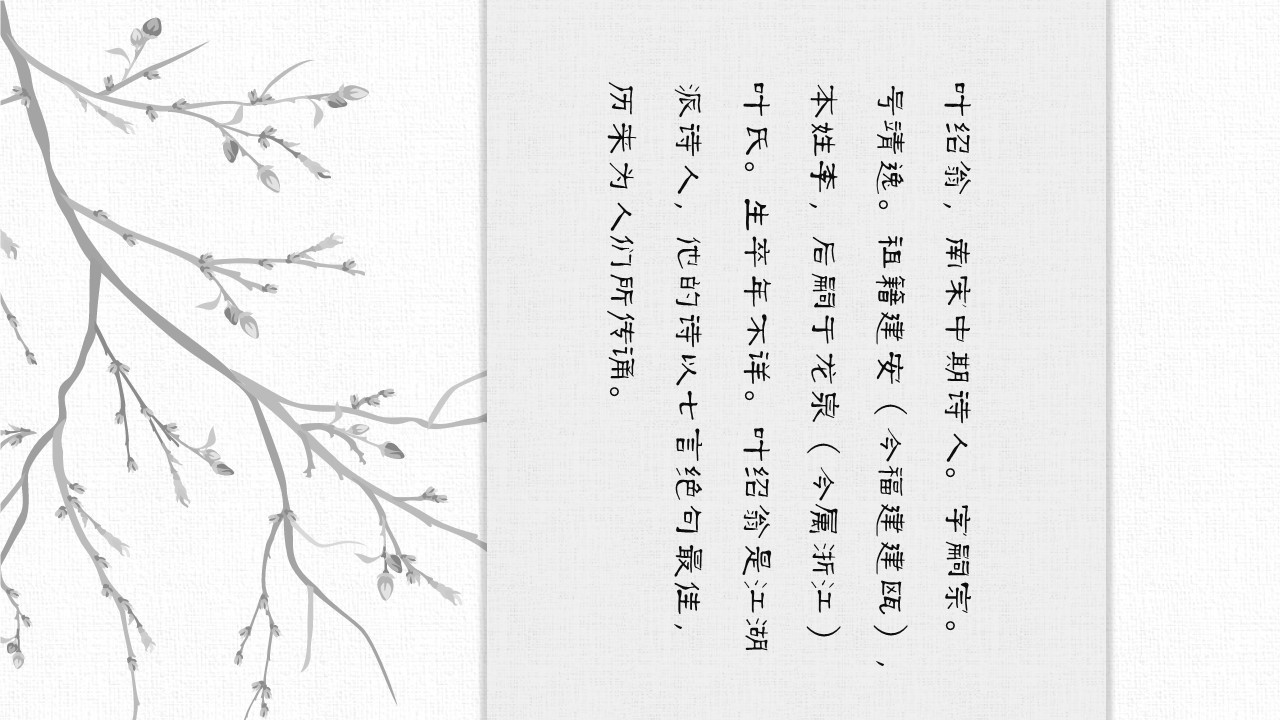 叶绍翁，南宋中期诗人。字嗣宗。
号靖逸。祖籍建安（今福建建瓯），
本姓李，后嗣于龙泉（今属浙江）
叶氏。生卒年不详。叶绍翁是江湖
派诗人，他的诗以七言绝句最佳，
历来为人们所传诵。